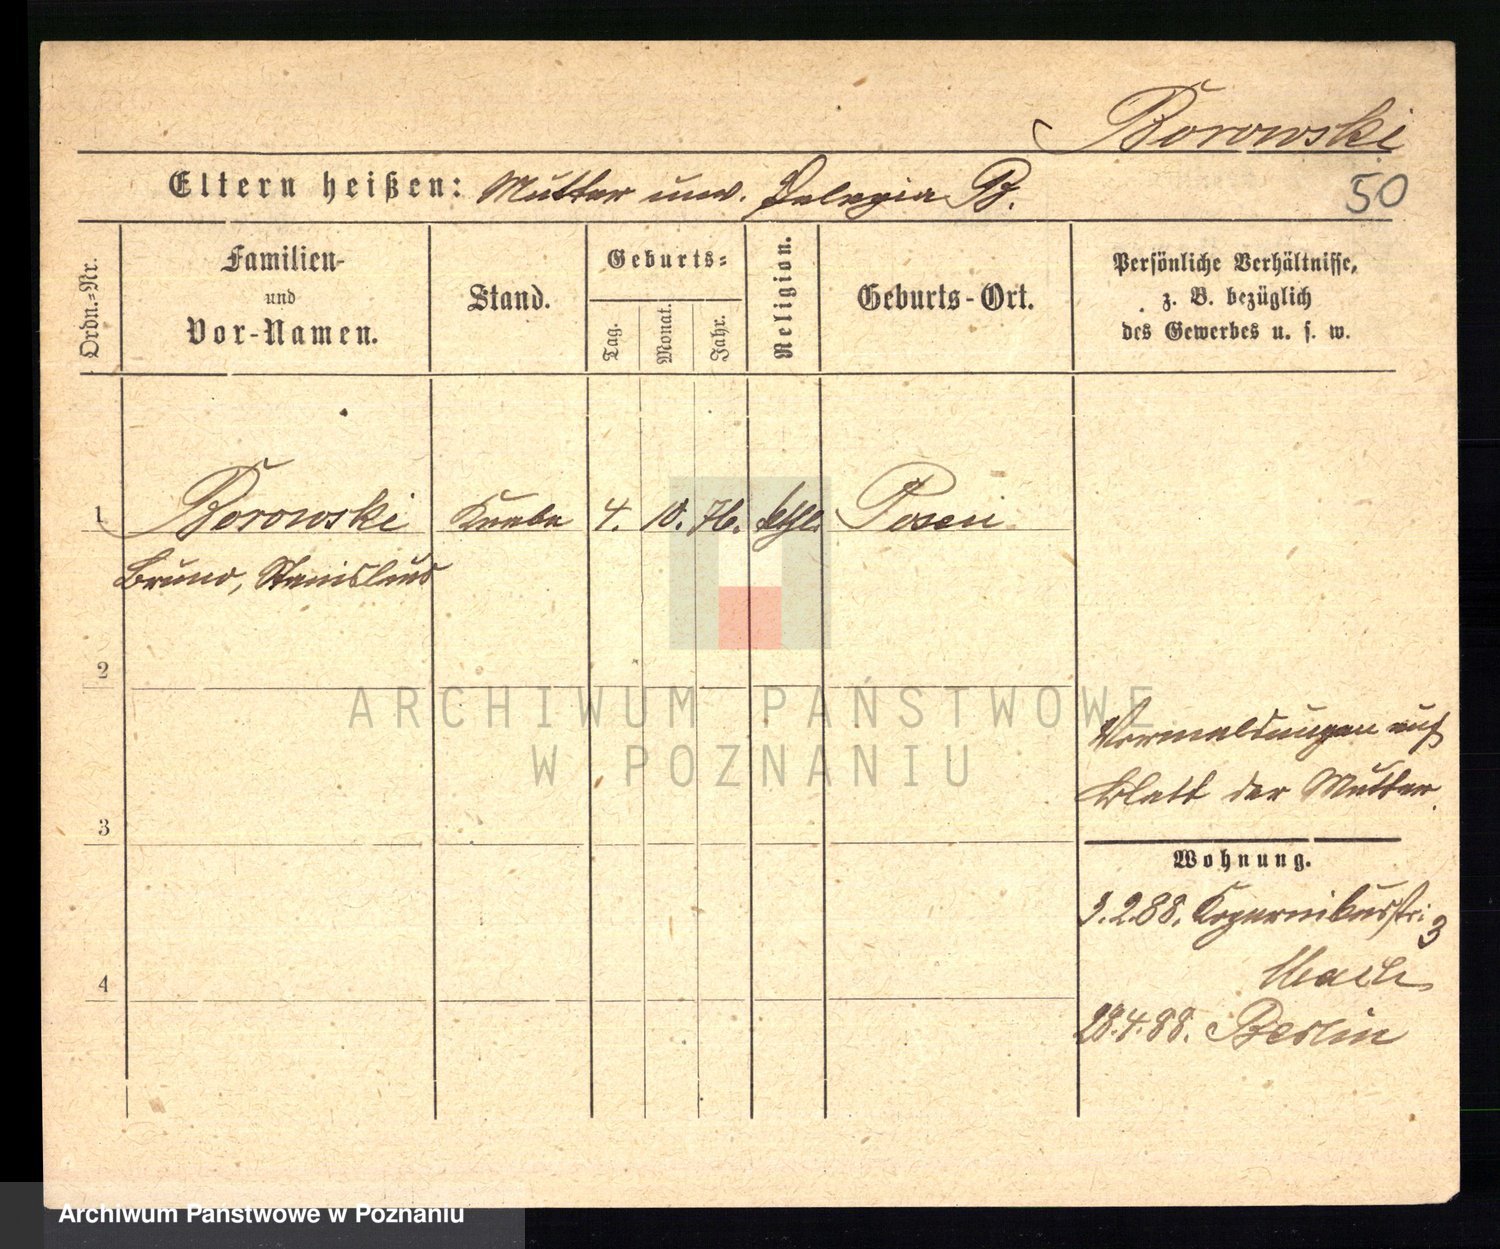 Borowski
Eltern heißen: Mutter unv. Pelagia B.
50
Ordn.=Nr.
Familien-
und
Vor-Namen.
Stand.
Geburts=
Tag.
Monat.
Jahr.
Religion.
Geburts-Ort.
Persönliche Verhältnisse,
z. B. bezüglich
des Gewerbes u. s. w.
1 Borowski Knabe 4. 10. 76. kthl. Posen
Bruno, Stanislaus
2
ARCHIWUM PAŃSTWOWE
W POZNANIU
Vormeldungen auf
Blatt der Mutter.
3
Wohnung.
3.2.88. Kopernikusstr: 3
4
28.4.88. Berlin
Archiwum Państwowe w Poznaniu